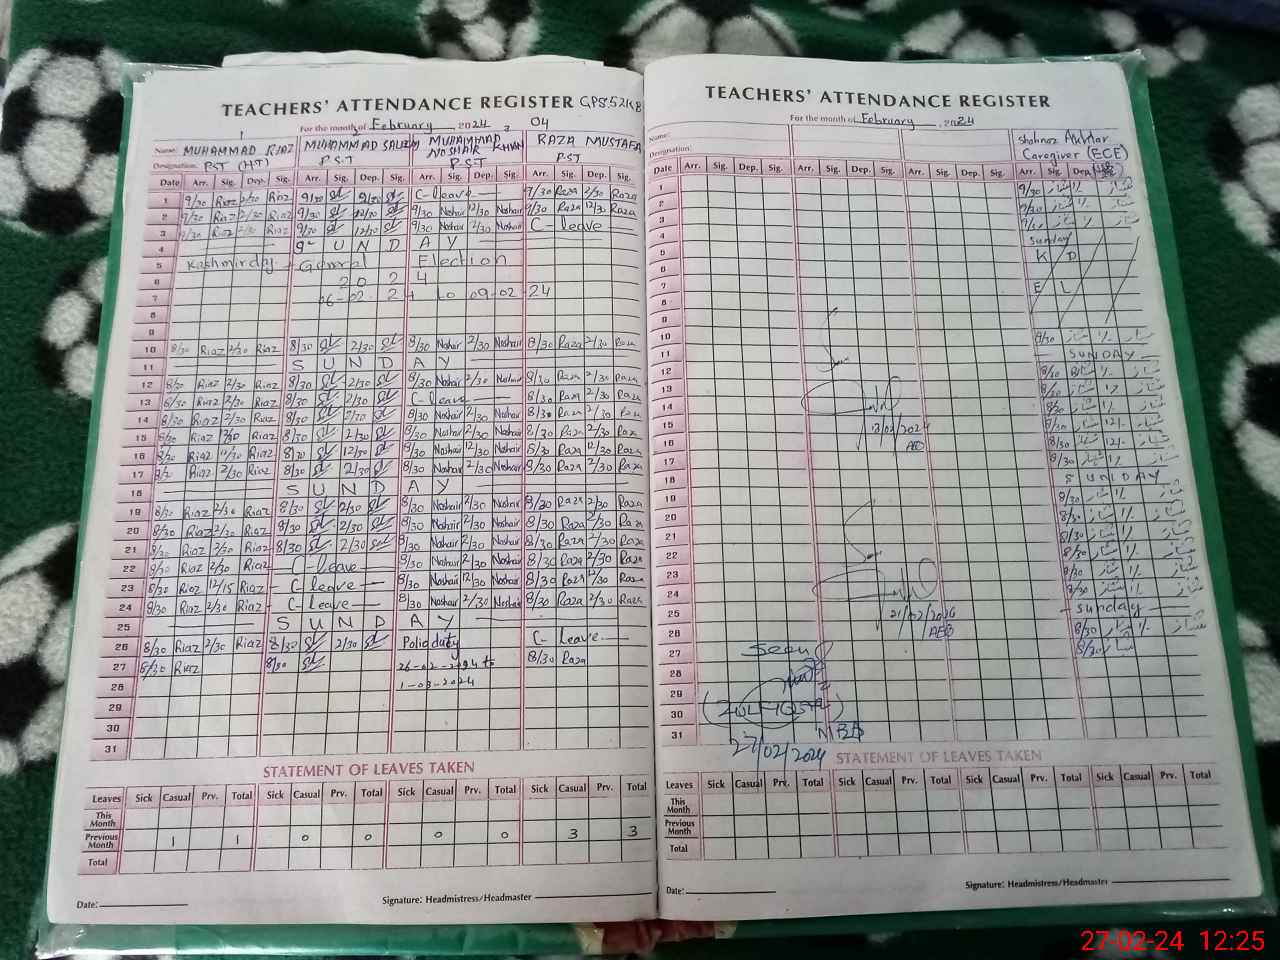 TEACHERS' ATTENDANCE REGISTER
For the month of February 2024
04
Name: MUHAMMAD RIAZ MUHAMMAD SALEEM MUHAMMAD NOSHAIR KHAN RAZA MUSTAFA
Designation: PST (HT) P.S.T P.S.T PST
Date Arr. Sig. Dep. Sig. Arr. Sig. Dep. Sig. Arr. Sig. Dep. Sig. Arr. Sig. Dep. Sig.
1 9/30 Riaz 2/30 Riaz 9/30 2/30 C-leave 9/30 Raza 2/30 Raza
2 9/30 Riaz 12/30 Riaz 9/30 12/30 9/30 Noshair 12/30 Noshair 9/30 Raza 12/30 Raza
3 9/30 Riaz 2/30 Riaz 9/30 9/30 Noshair 2/30 Noshair C-leave
4 S U N D A Y
5 Kashmirday General Election
6 2 0 2 4
7 06-02-24 to 09-02-24
8
9
10 8/30 Riaz 2/30 Riaz 8/30 2/30 8/30 Noshair 2/30 Noshair 8/30 Raza 2/30 Raza
11 S U N D A Y
12 8/30 Riaz 2/30 Riaz 8/30 2/30 8/30 Noshair 2/30 Noshair 8/30 Raza 2/30 Raza
13 8/30 Riaz 2/30 Riaz 8/30 2/30 C-leave 8/30 Raza 2/30 Raza
14 8/30 Riaz 2/30 Riaz 8/30 2/30 8/30 Noshair 2/30 Noshair 8/30 Raza 2/30 Raza
15 8/30 Riaz Riaz 8/30 2/30 8/30 Noshair 2/30 Noshair 8/30 Raza 2/30 Raza
16 Riaz 12/30 Riaz 8/30 12/30 8/30 Noshair 12/30 Noshair 8/30 Raza 12/30 Raza
17 Riaz 2/30 Riaz 8/30 2/30 8/30 Noshair 2/30 Noshair 8/30 Raza 2/30 Raza
18 S U N D A Y
19 8/30 Riaz 2/30 Riaz 8/30 2/30 8/30 Noshair 2/30 Noshair 8/30 Raza 2/30 Raza
20 8/30 Riaz 2/30 Riaz 8/30 2/30 8/30 Noshair 2/30 Noshair 8/30 Raza 2/30 Raza
21 8/30 Riaz 2/30 Riaz 8/30 2/30 8/30 Noshair 2/30 Noshair 8/30 Raza 2/30 Raza
22 8/30 Riaz 2/30 Riaz C-leave 8/30 Noshair 2/30 Noshair 8/30 Raza 2/30 Raza
23 8/30 Riaz 12/15 Riaz C-leave 8/30 Noshair 12/30 Noshair 8/30 Raza 12/30 Raza
24 8/30 Riaz 2/30 Riaz C-leave 8/30 Noshair 2/30 Noshair 8/30 Raza 2/30 Raza
25 S U N D A Y
26 8/30 Riaz 2/30 Riaz 8/30 2/30 Polio duty C-Leave
27 8/30 Riaz 8/30 26-02-2024 to 8/30 Raza
28 1-03-2024
29
30
31
STATEMENT OF LEAVES TAKEN
Leaves Sick Casual Prv. Total Sick Casual Prv. Total Sick Casual Prv. Total Sick Casual Prv. Total
This Month
Previous Month 1 1 0 0 0 0 3 3
Total
Date:
Signature: Headmistress/Headmaster
TEACHERS' ATTENDANCE REGISTER
For the month of February 2024
Name: Shahnaz Akhtar
Designation: Caregiver (ECE)
Date Arr. Sig. Dep. Sig. Arr. Sig. Dep. Sig. Arr. Sig. Dep. Sig. Arr. Sig. Dep.
1 9/30
2 9/30
3
4 Sunday
5 K D
6
7 E L
8
9
10 8/30
11 SUNDAY
12 8/30
13 8/30
14 8/30
15 8/30
16 8/30
17 8/30
18 SUNDAY
19 8/30
20 8/30
21 8/30
22 8/30
23 8/30
24 8/30
25 Sunday
26 8/30
27 8/30
28
29
30
31
13/02/2024
AEO
21/02/2024
AEO
Seen
27/02/2024
STATEMENT OF LEAVES TAKEN
Leaves Sick Casual Prv. Total Sick Casual Prv. Total Sick Casual Prv. Total Sick Casual Prv. Total
This Month
Previous Month
Total
Date:
Signature: Headmistress/Headmaster
27-02-24 12:25